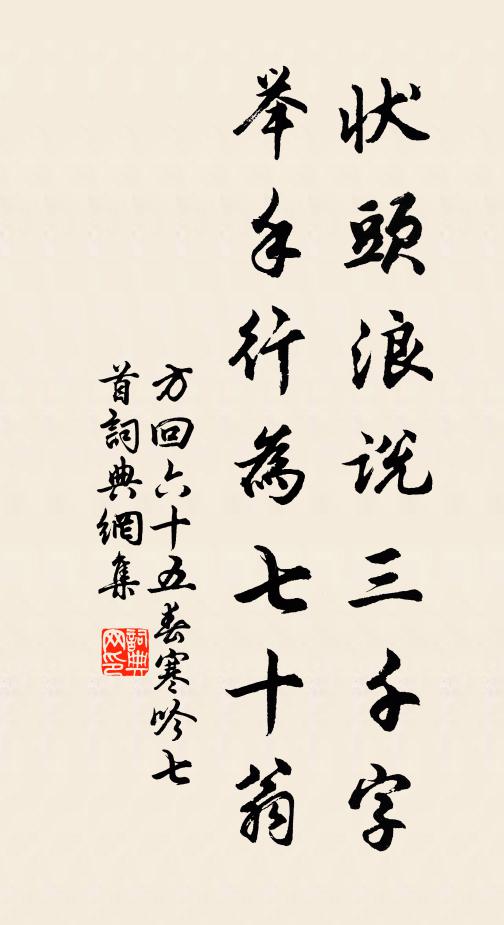 状頭浪说三千字
举手行為七十翁
方回六十五春寒吟七
首詞典網集
詞典
网印